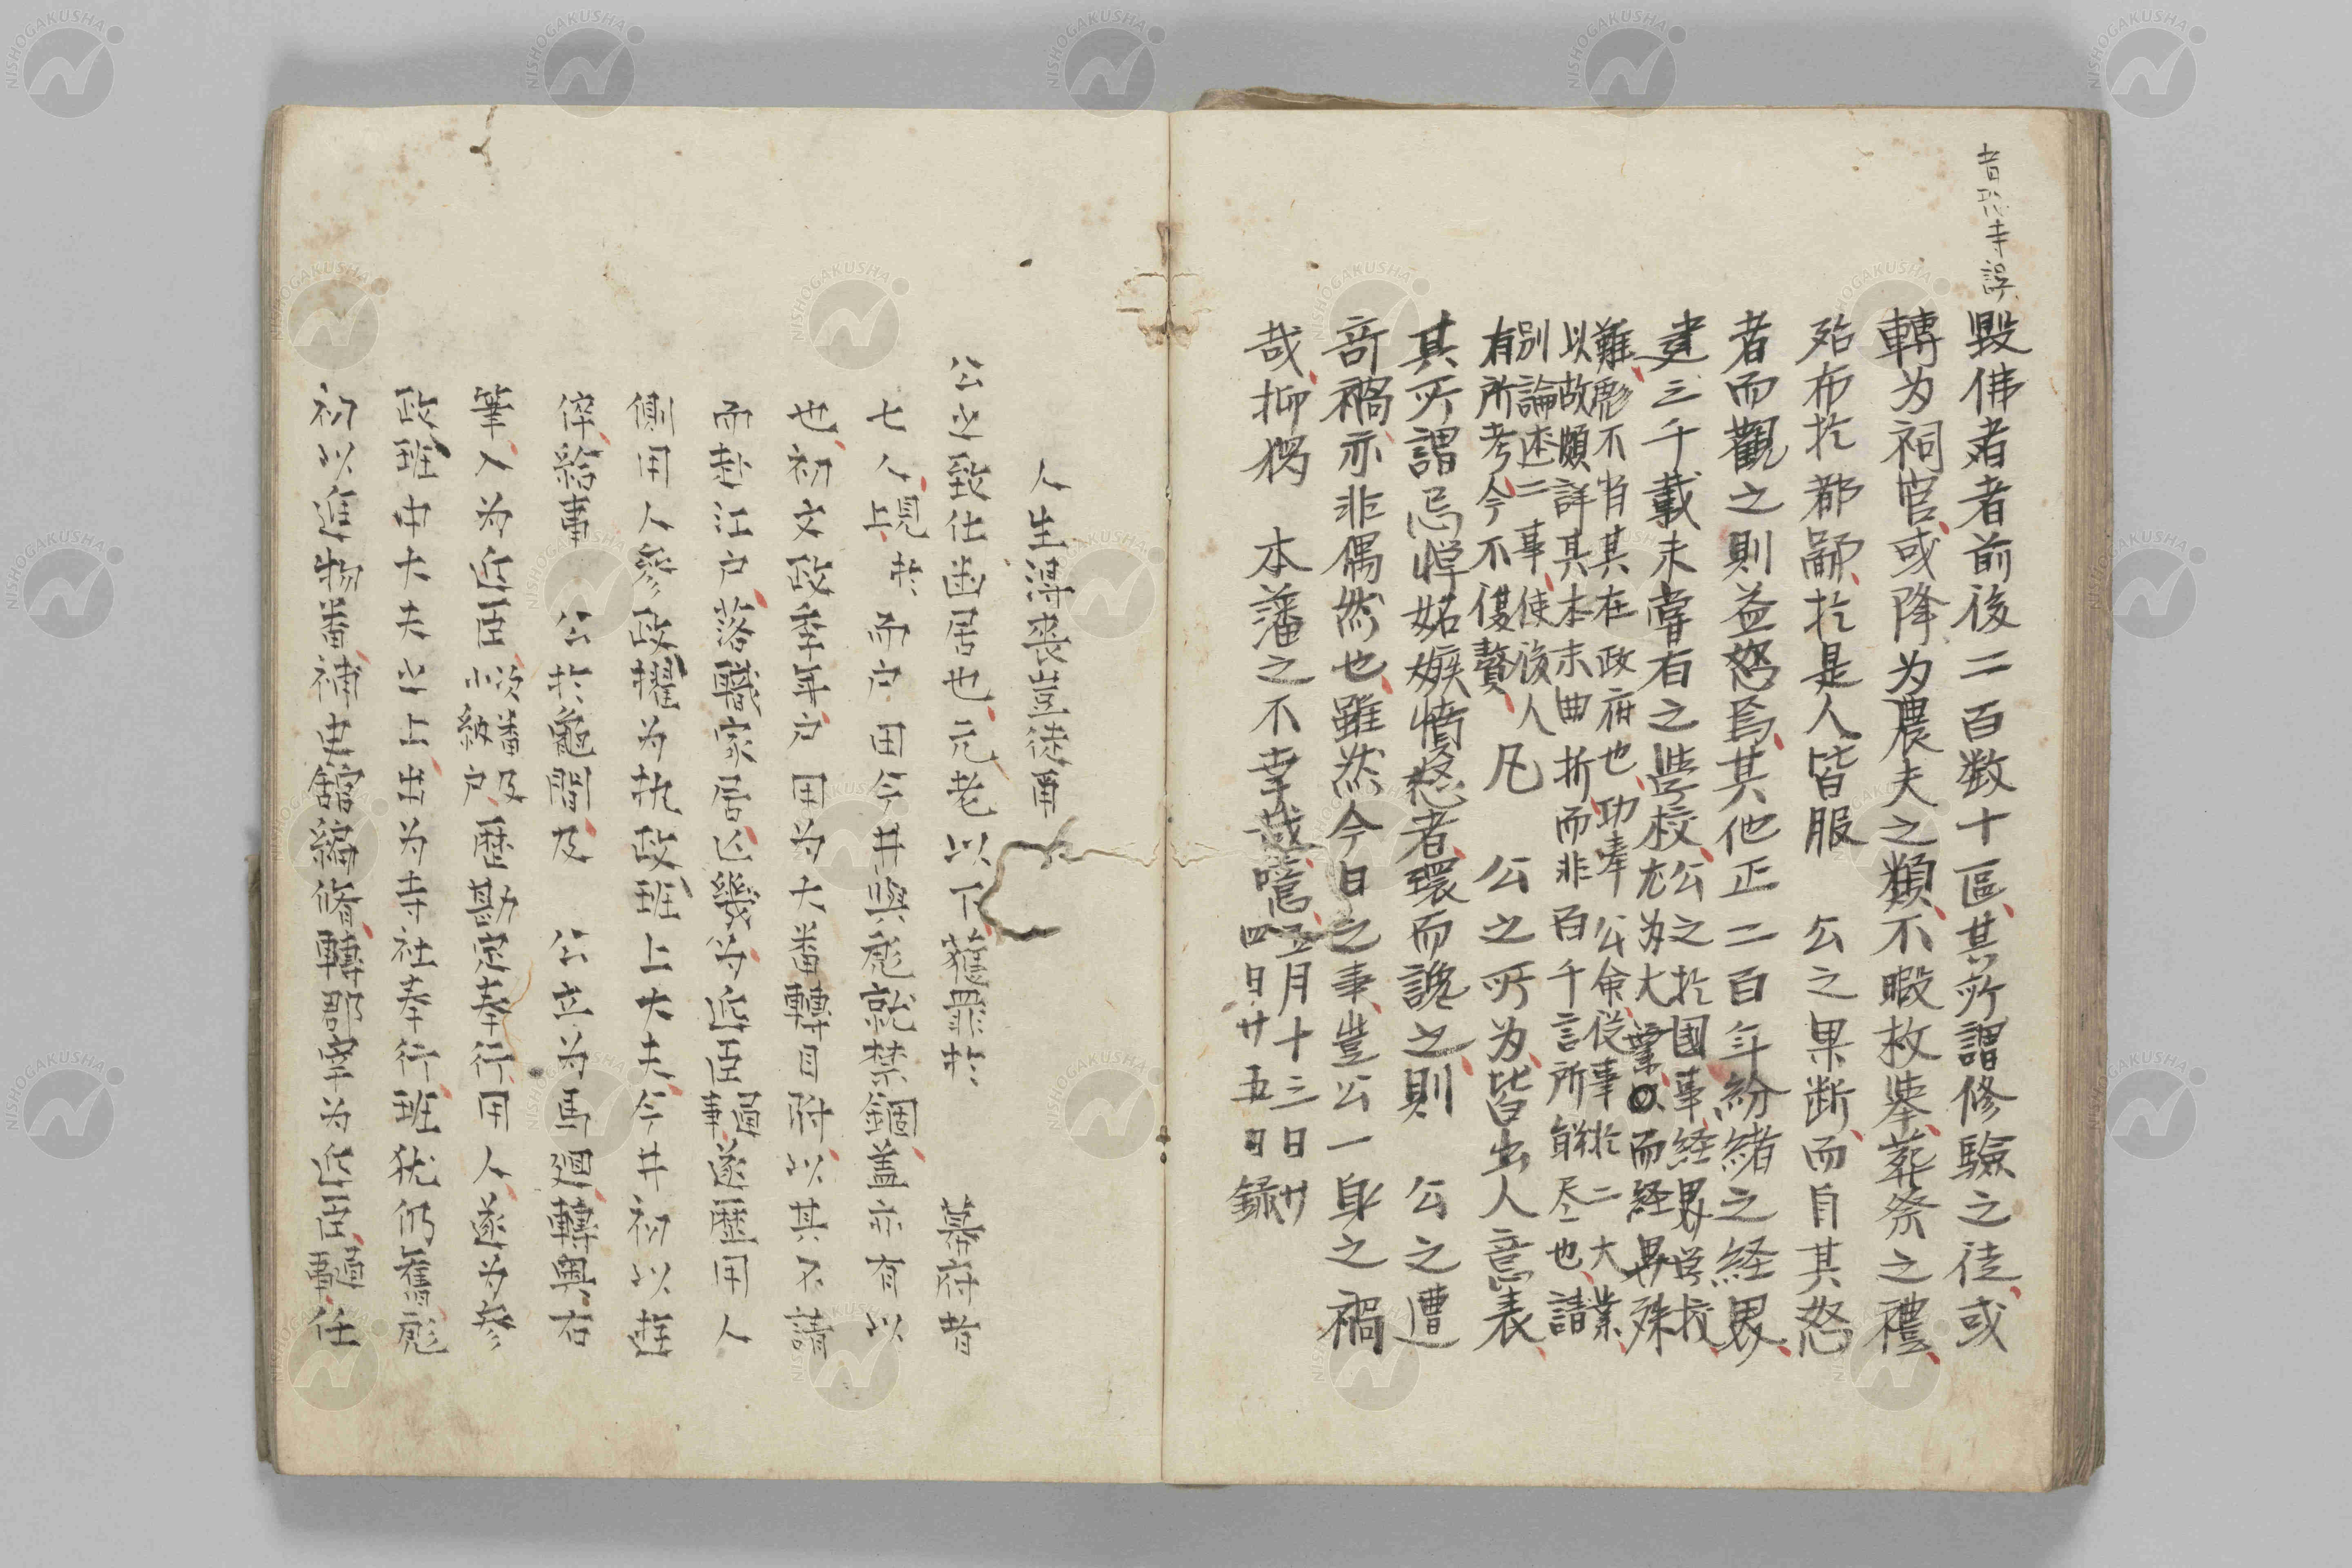 毀佛者者前後二百数十區其所謂修驗之徒或
轉为祠官或降为農夫之類不暇枚挙葬祭之禮
殆布於都鄙於是人皆服　公之果断而自其怒
者而觀之則益怒焉其他正二百年紛緒之経界
建三千載未甞有之學校公之於國事経界学校
尤为大業而経界殊
難彪不肖其在政府也功奉公命従事於二大業
以故頗詳其本末曲折而非百千言所能尽也請
別論述二事使後人
有所考今不復贅凡　公之所为皆出人意表
其所謂忌憚妬嫉憤怒者環而讒之則　公之遭
奇禍亦非偶然也雖然今日之事豈公一身之禍
哉抑猶　本藩之不幸哉噫五月十三日廿
四日廿五日録
人生得喪豈徒爾
公之致仕幽居也元老以下獲罪於　幕府者
七人上見於而戸田今井與彪就禁錮蓋亦有以
也初文政季年戸田为大番轉目附以其不諧
而赴江戸落職家居亡幾为近臣通事遂歴用人
側用人參政擢为執政班上大夫今井初以進
倅給事　公於龜間及　公立为馬廻轉奥右
筆入为近臣次番及小納戸歴勘定奉行用人遂为參
政班中大夫之上出为寺社奉行班犹仍舊彪
初以進物番補史館編脩轉郡宰为近臣通事任